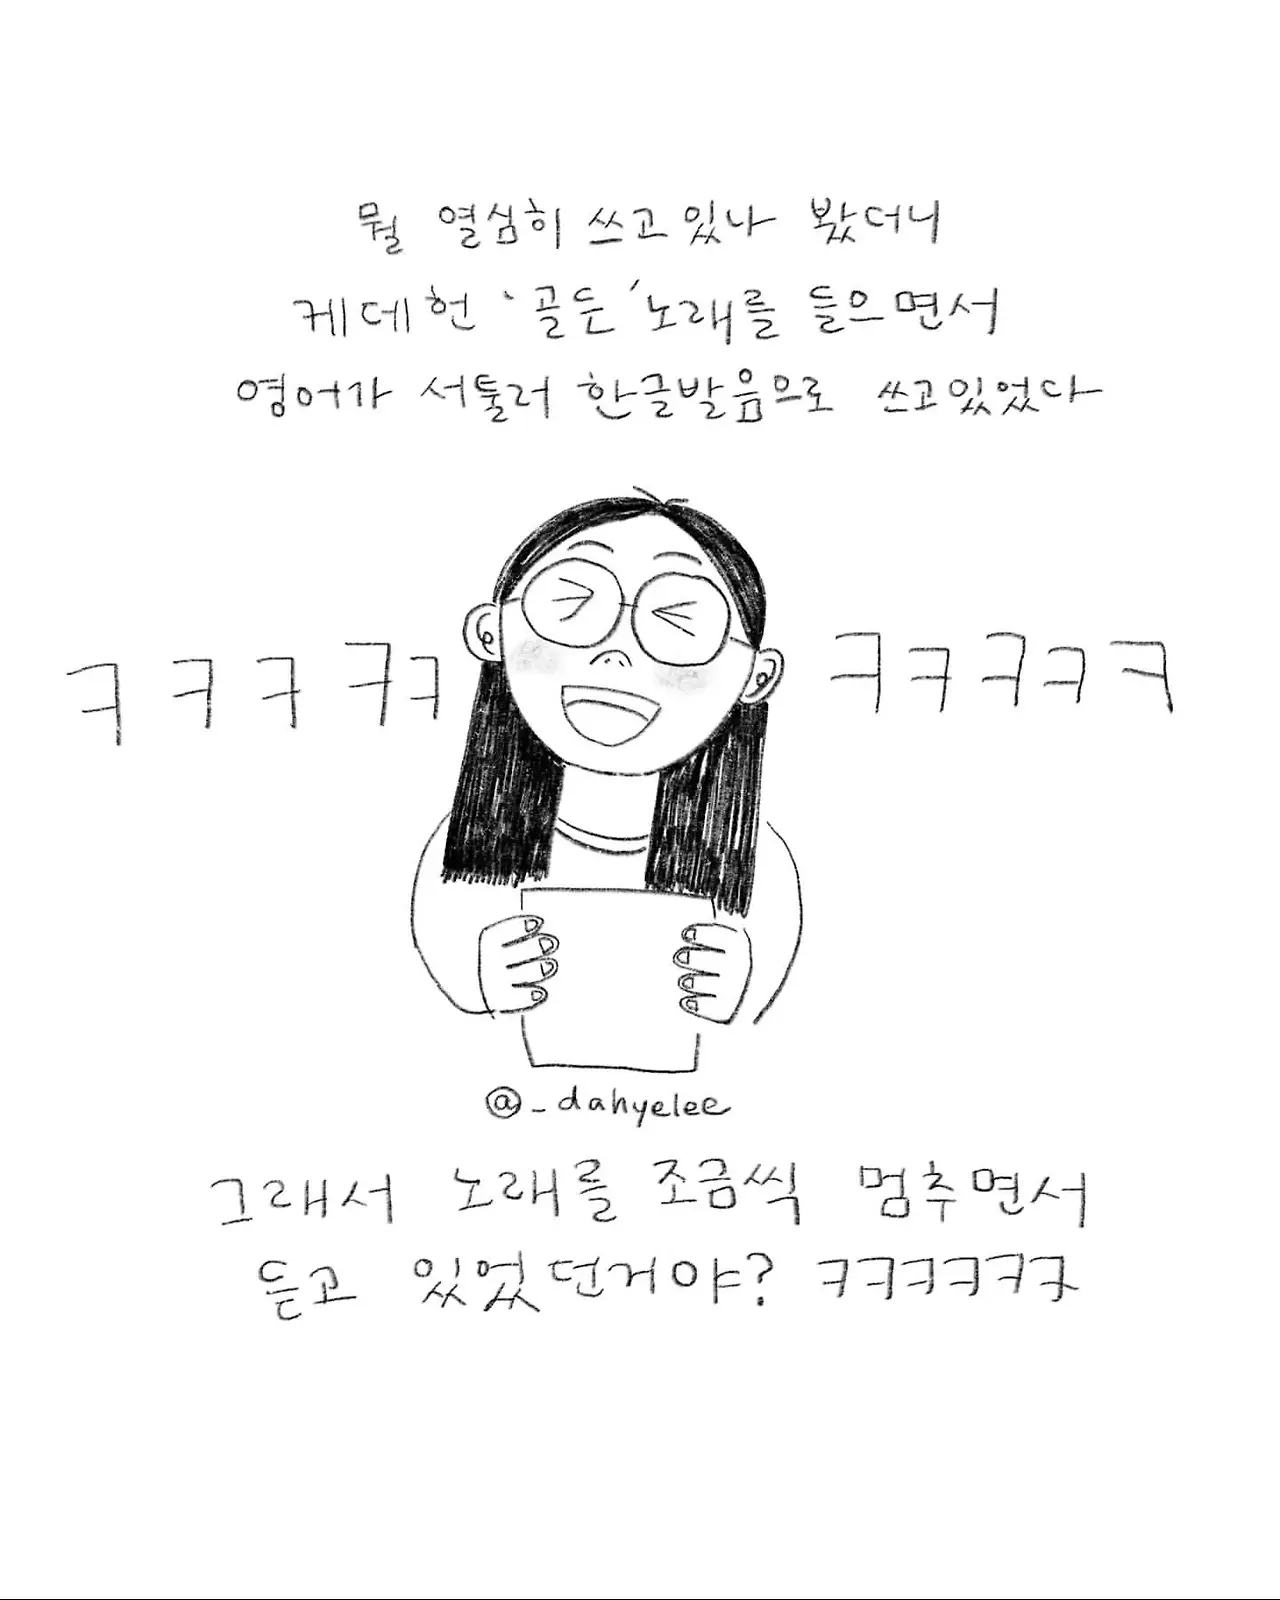 뭘 열심히 쓰고있나 봤더니
케데헌 '골든' 노래를 들으면서
영어가 서툴러 한글발음으로 쓰고있었다
ㅋㅋㅋㅋㅋ ㅋㅋㅋㅋㅋ
@_dahyelee
그래서 노래를 조금씩 멈추면서
듣고 있었던거야? ㅋㅋㅋㅋㅋㅋ